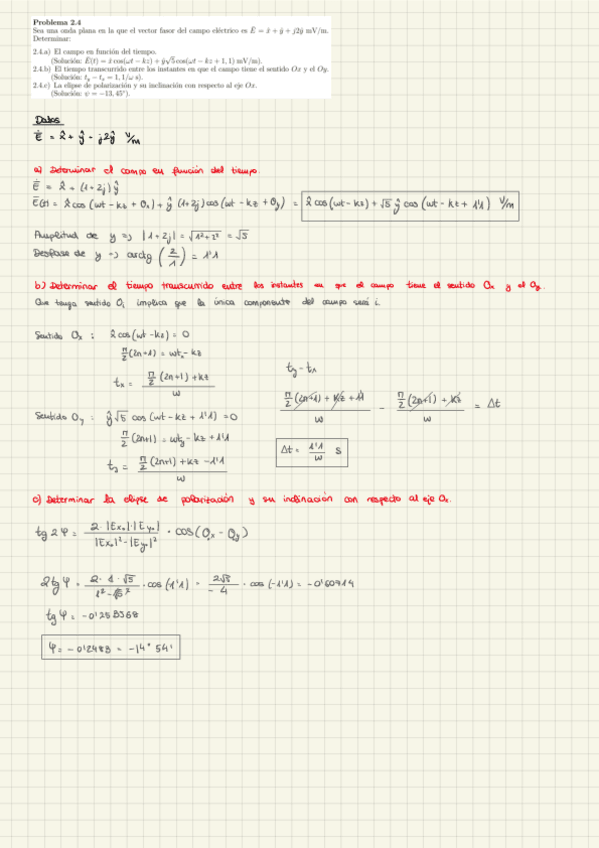 Problema 2.4
Sea una onda plana en la que el vector fasor del campo eléctrico es Ē = x̂ + ŷ + j2ŷ mV/m.
Determinar:
2.4.a) El campo en función del tiempo.
(Solución: Ē(t) = x̂ cos(ωt − kz) + ŷ√5 cos(ωt − kz + 1,1) mV/m).
2.4.b) El tiempo transcurrido entre los instantes en que el campo tiene el sentido Ox y el Oy.
(Solución: ty − tx = 1,1/ω s).
2.4.c) La elipse de polarización y su inclinación con respecto al eje Ox.
(Solución: ψ = −13,45°).
Datos
Ē = x̂ + ŷ - j2ŷ V/m
a) Determinar el campo en función del tiempo.
Ē = x̂ + (1+2j) ŷ
Ē(t) = x̂ cos (wt - kz + Ox) + ŷ (1+2j) cos (wt - kz + Oy) = x̂ cos (wt - kz) + √5 ŷ cos (wt - kz + 1'1) V/m
Amplitud de y => |1+2j| = √1²+2² = √5
Desfase de y => arctg (2/1) = 1'1
b) Determinar el tiempo transcurrido entre los instantes en que el campo tiene el sentido Ox y el Oy.
Que tenga sentido Oi implica que la única componente del campo será i.
Sentido Ox : x̂ cos (wt - kz) = 0
π/2 (2n+1) = wtx - kz
tx = π/2 (2n+1) + kz / w
Sentido Oy : ŷ √5 cos (wt - kz + 1'1) = 0
π/2 (2n+1) = wty - kz + 1'1
ty = π/2 (2n+1) + kz - 1'1 / w
ty - tx
π/2 (2n+1) + kz + 1'1 / w - π/2 (2n+1) + kz / w = Δt
Δt = 1'1/w s
c) Determinar la elipse de polarización y su inclinación con respecto al eje Ox.
tg 2φ = 2·|Exo|·|Eyo| / |Exo|² - |Eyo|² · cos (Ox - Oy)
2tg φ = 2·1·√5 / 1² - √5² · cos (-1'1) = 2√5 / -4 · cos (-1'1) = -0'50714
tg φ = -0'25357
φ = -0'2483 = -14° 54'